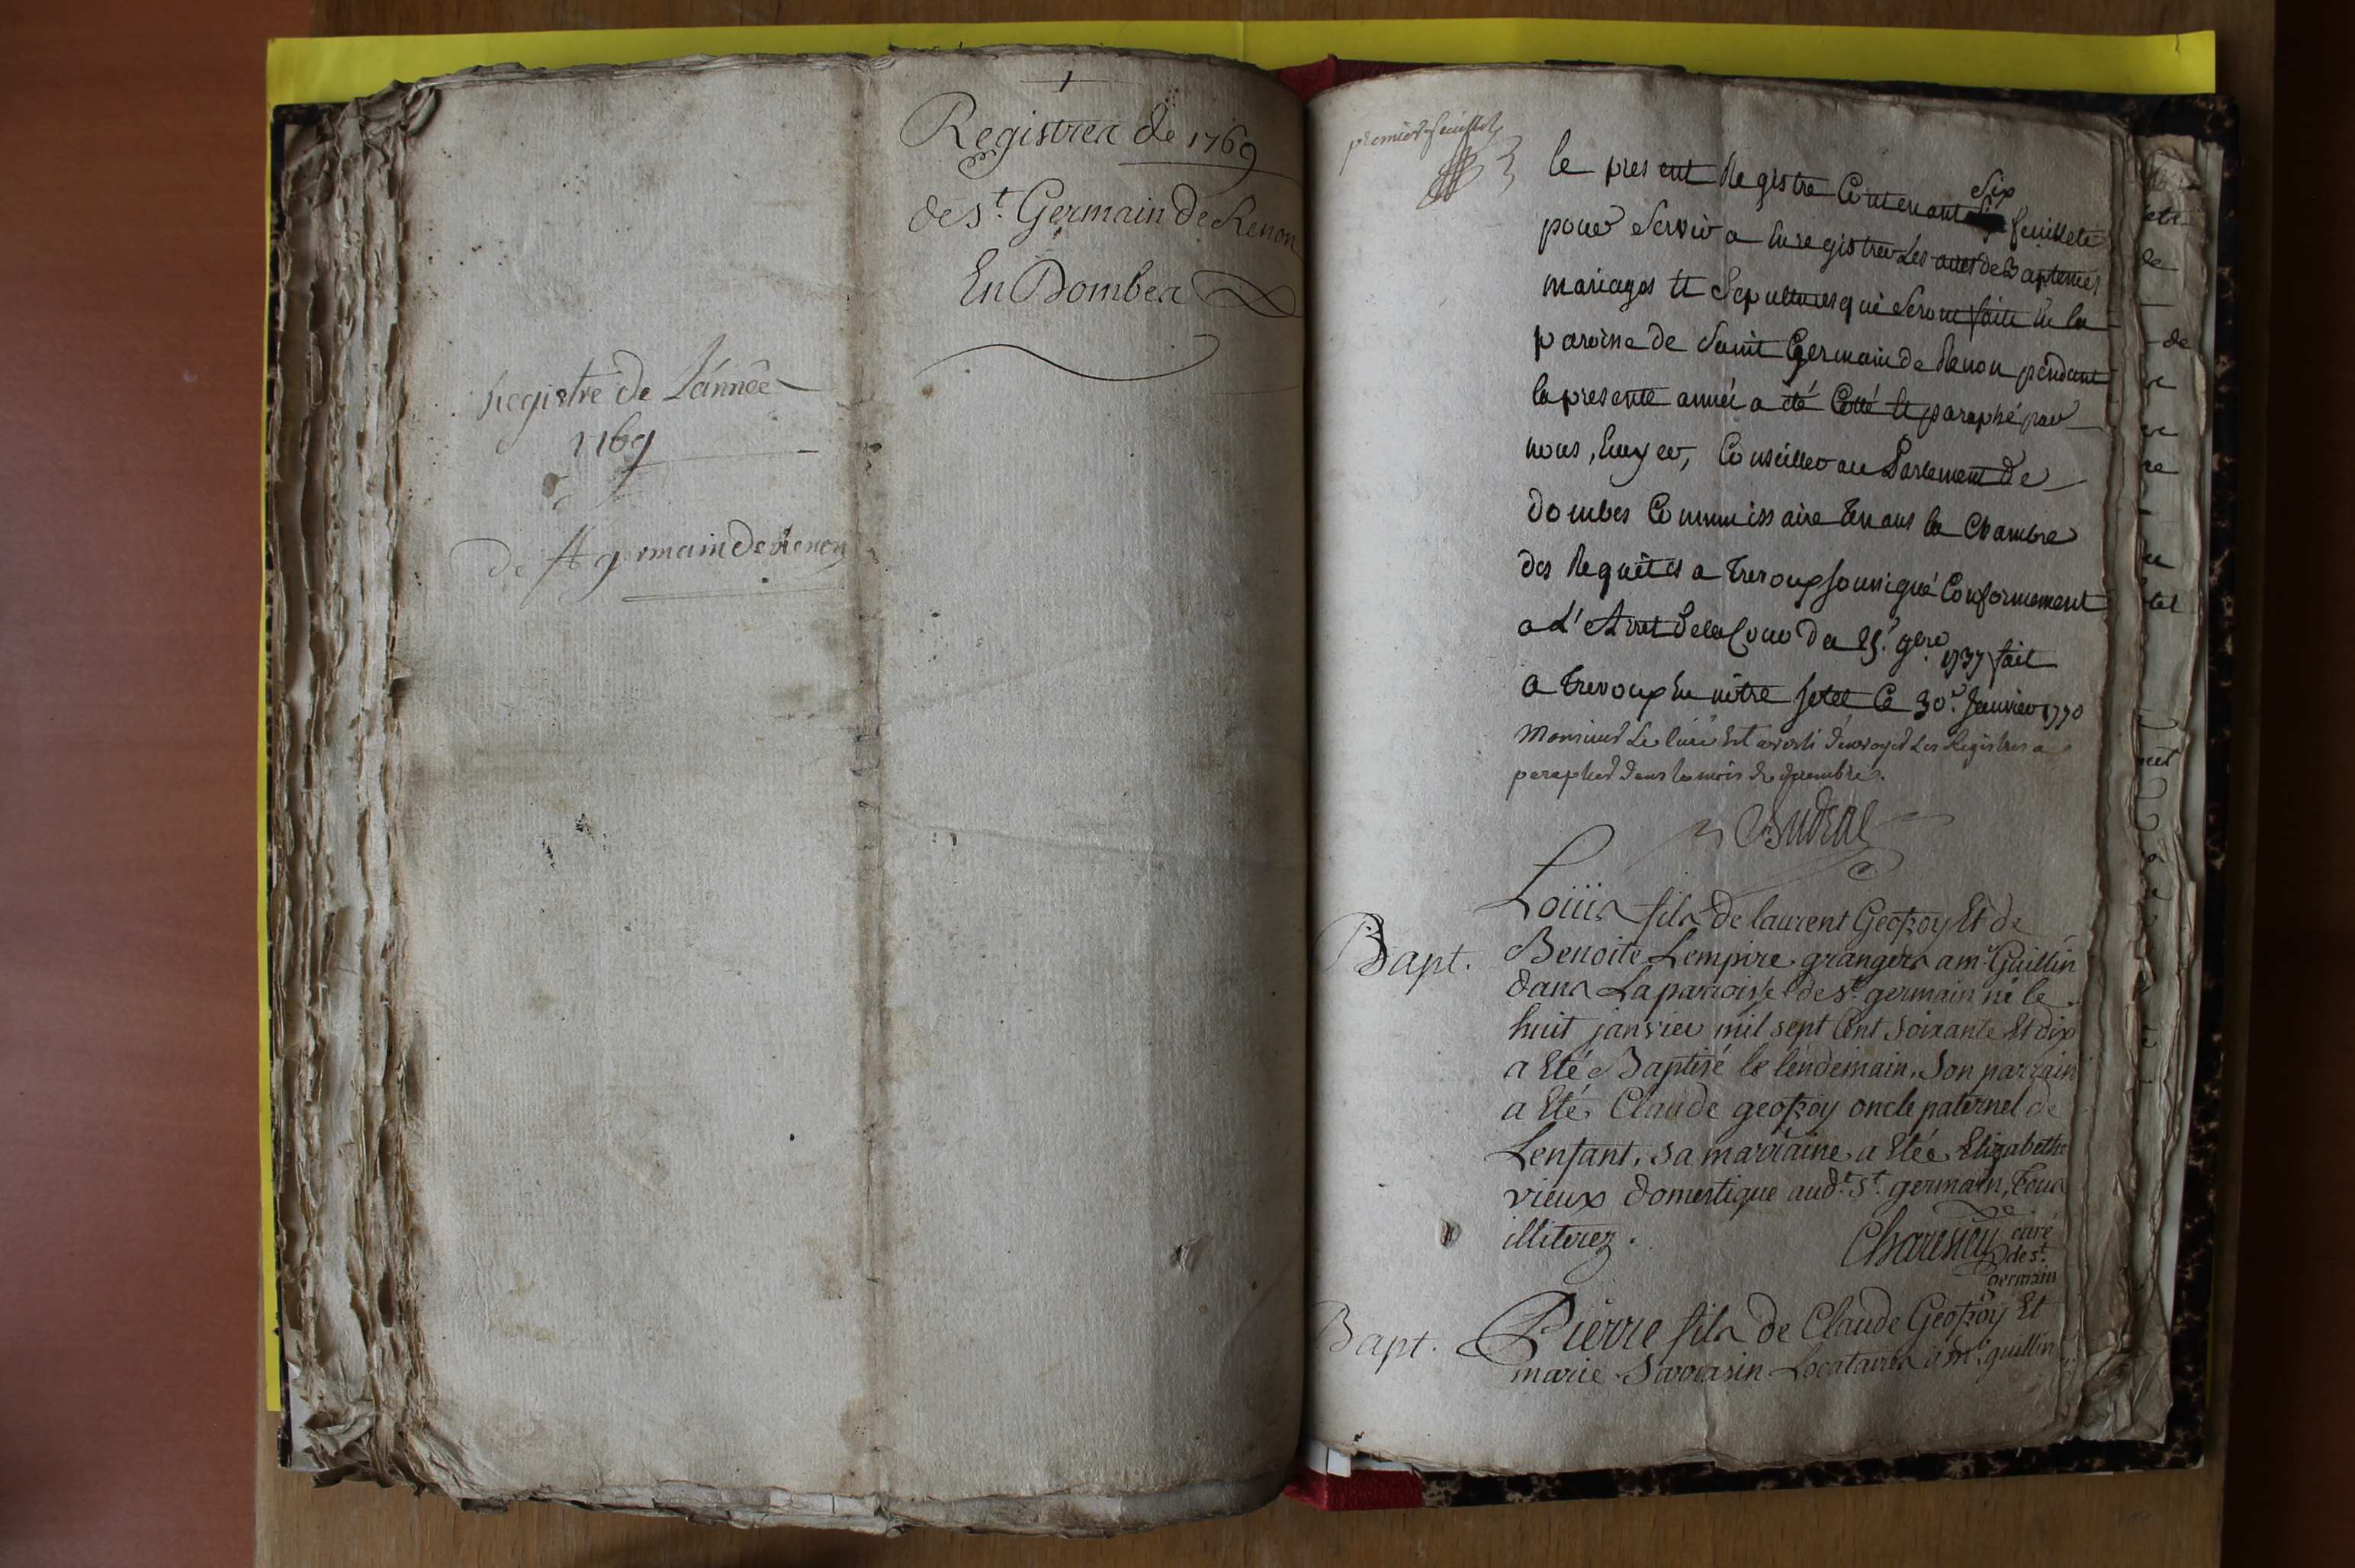 Registre de L'année
1769
de st germain de Renon
1
Registres de 1769
de st. Germain de Renon
En Dombes
premier feuillet
le present Registre Contenant Six feuillets
pour Servir a Enregistrer Les actes de Baptemes
mariages et Sepultures qui Seront faits En la
paroisse de Saint Germain de Renon pendant
la presente année a été Cotté et paraphé par
nous, Ecuyer, Conseiller au Parlement de
Dombes Commissaire tenant la Chambre
des Requêtes a Trevoux soussigné Conformement
a L'Arret de la Cour du 25. 9bre 1737 fait
a Trevoux En nôtre hotel Ce 30e. Janvier 1770
Monsieur Le Curé Est averti d'envoyer Les Registres a
parapher dans le mois de decembre.
Louis fils de laurent Geofroy Et de
Bapt.
Benoite Lempire grangers a mr Guillin
dans La parroisse de st germain né le
huit janvier mil sept Cent soixante Et dix
a Eté Baptisé le lendemain, Son parrain
a Eté Claude geofroy oncle paternel de
L'enfant, sa marraine a Etée Elizabethe
vieux domestique aud.t st. germain, tous
illiterez.
curé
de st.
germain
Bapt.
Pierre fils de Claude Geofroy Et
marie Sarrasin Locataires a mr. guillin